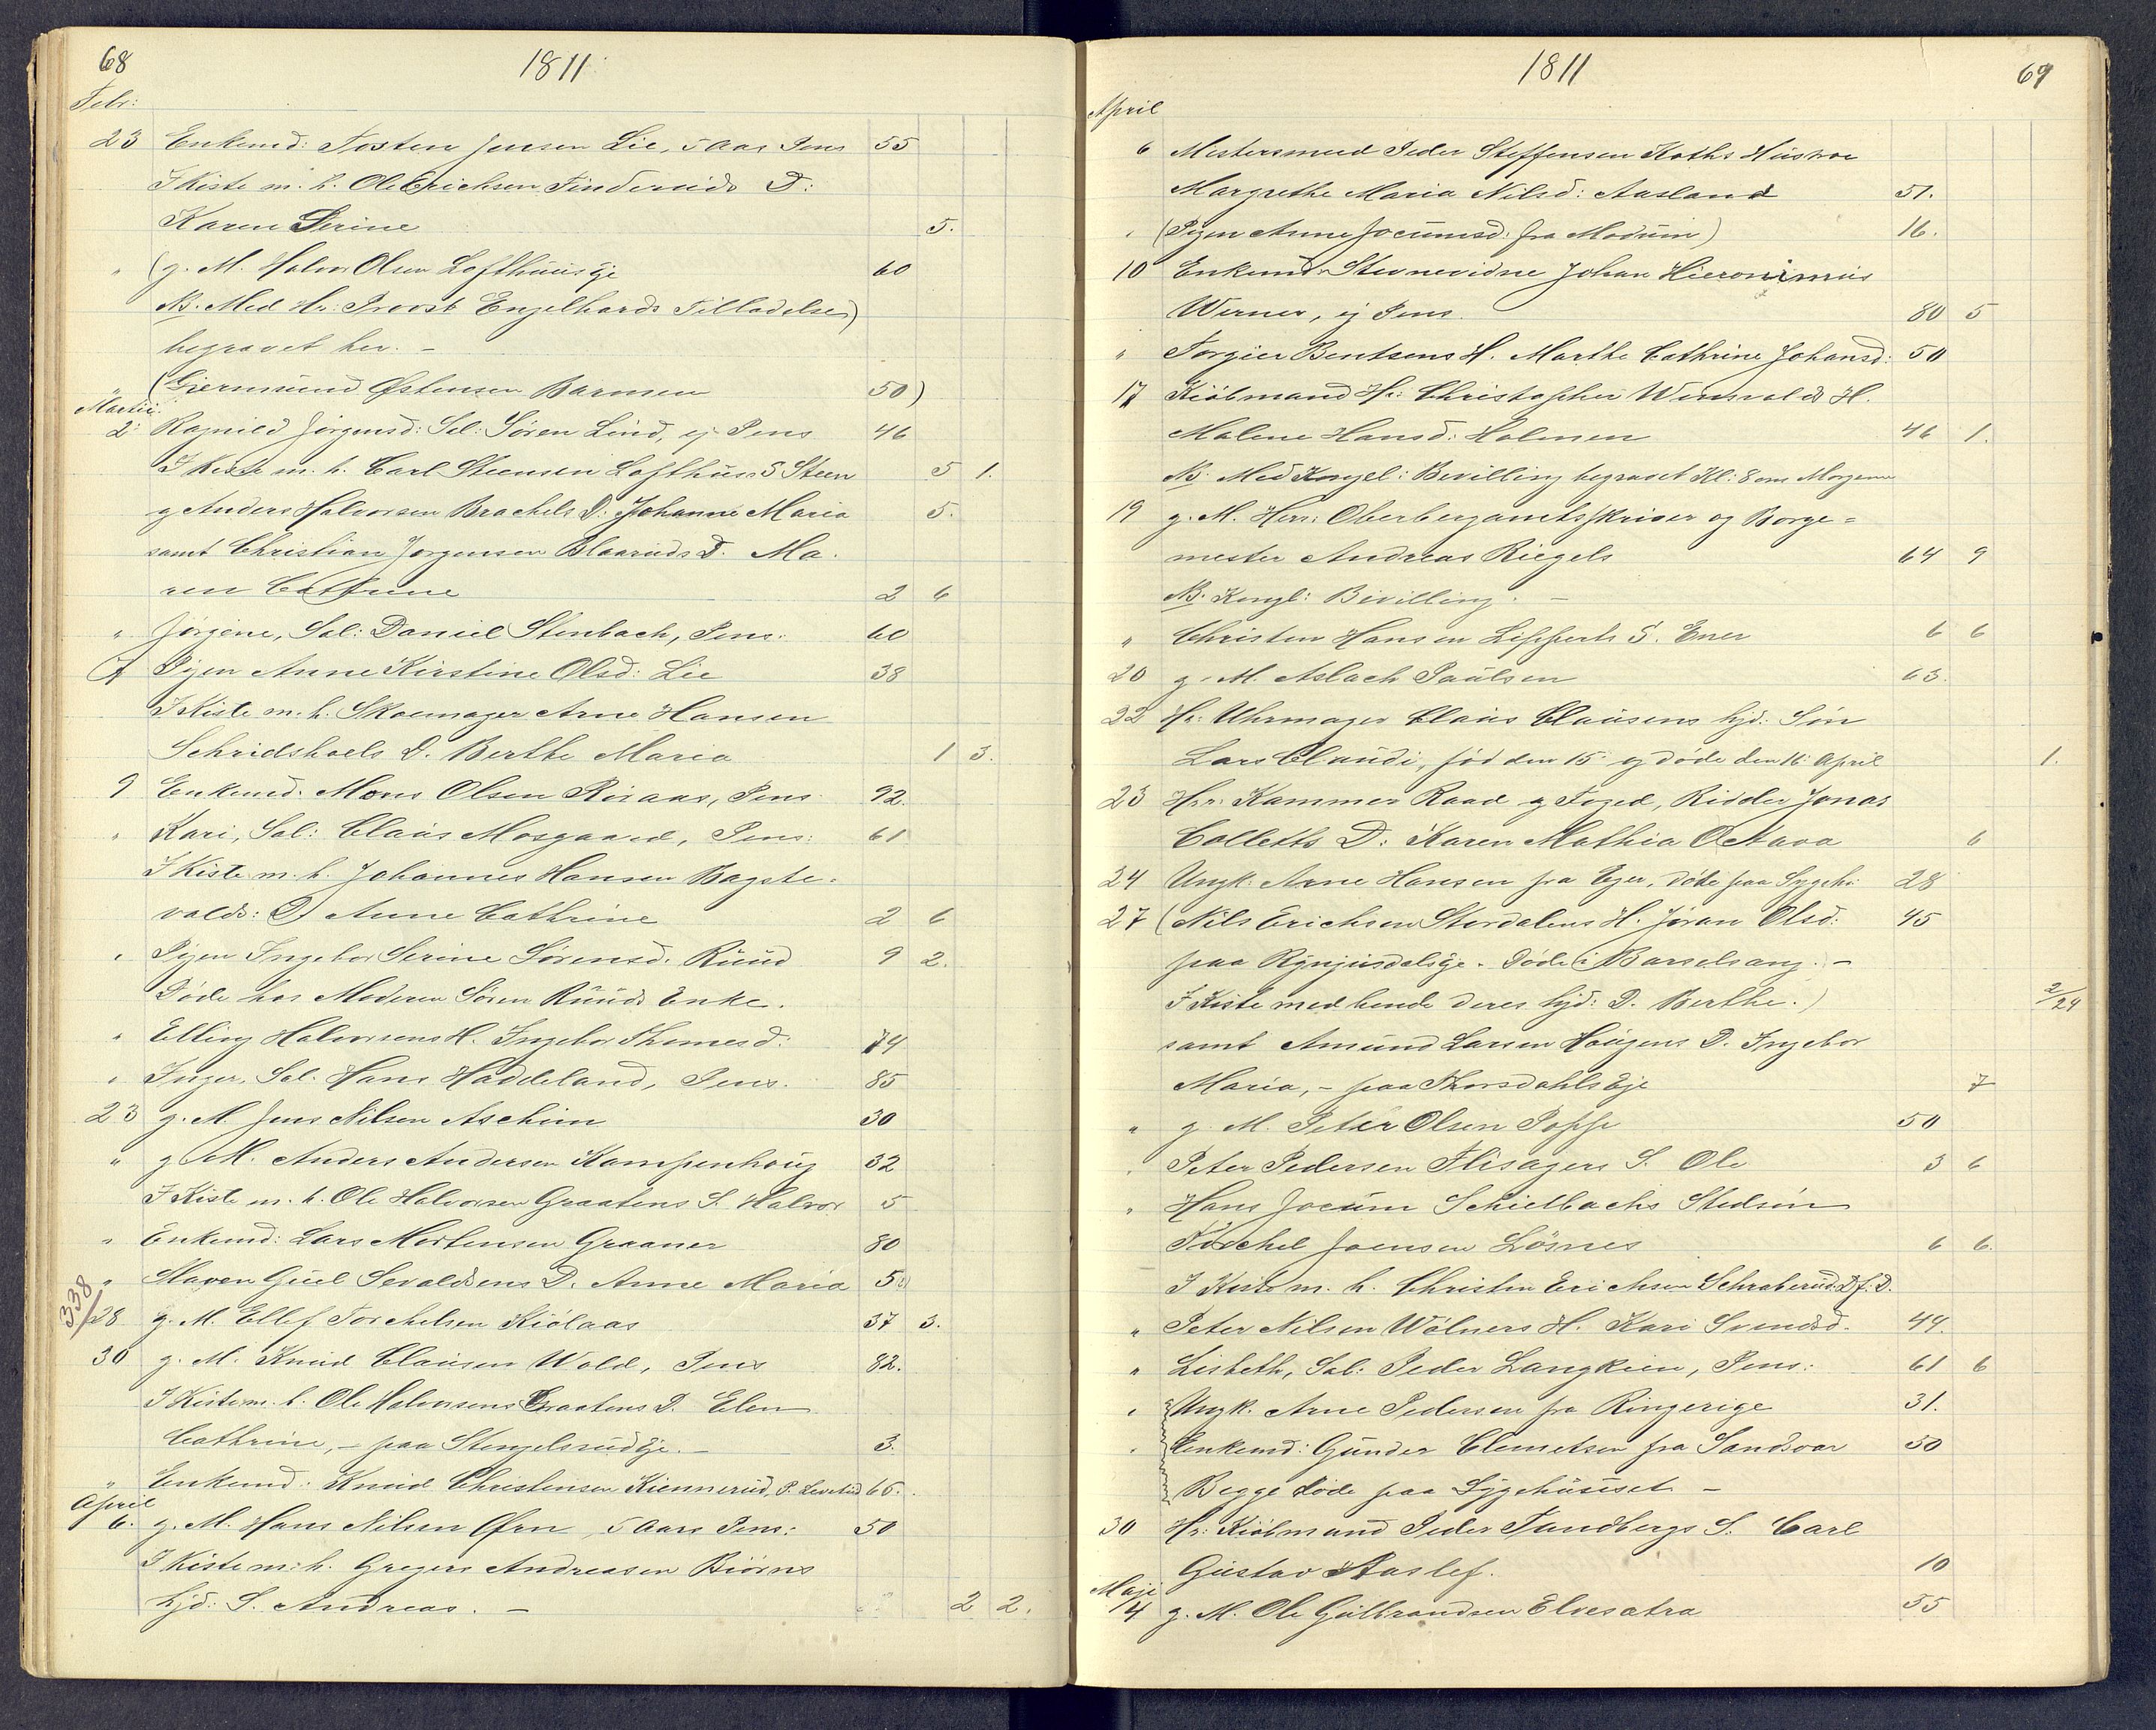 68
1811
Febr:
23 Enkemd: Tosten Jensen Lie, 5 Aar Pens 55
I Kiste m. h. Ole Erichsen Tinderuds D:
Karen Serine 5.
" (g. M. Halvor Olsen Lofthuus Eje 60
NB. Med Hr: Provst Engelhards Tilladelse)
begravet her. -
" (Giermund Østensen Barmen 50)
Martii.
2: Ragnild Jørgensd: Sal: Søren Lind, ej Pens 46
I Kiste m. h. Carl Steensen Lofthus S. Steen 5 1.
og Anders Halvorsen Brachels D: Johanne Maria 5.
samt Christian Jørgensen Blaaruds D. Ma.
ren Cathrine 2 6
" Jørgine, Sal: Daniel Stenbach, Pens: 60
7 Pigen Anne Kirstine Olsd: Lie 38
I Kiste m. h. Skoemager Arne Hansen
Schridshoels D. Berthe Maria 1 3.
9 Enkemd. Mons Olsen Riisaas, Pens 92.
" Kari, Sal: Claus Mosgaard, Pens: 61
I Kiste m. h. Johannes Hansen Bagste-
valds: D. Anne Cathrine 2 6
" Pigen Ingebor Serine Sørensd. Ruud 9 2.
Døde hos Moderen Søren Ruuds Enke.
" Elling Halvorsens H. Ingebor Thomesd: 74
" Inger, Sal. Hans Haddeland, Pens. 85
23 g. M. Jens Nilsen Aschim 30
" g. M. Anders Andersen Kampenhoug 32
I Kiste m. h. Ole Halvorsen Graatens S. Halvor 5
" Enkemd: Lars Mortensen Graaner 80
" Maren Guel Sevaldsens D. Anne Maria 5
338
28 g. M. Ellef Torchelsen Kiølaas 37 3.
30 g. M. Knud Clausen Wold, Pens 82.
I Kiste m. h. Ole Halvorsens Graatens D. Elen
Cathrine, - paa Stengelsrud Eje. - 3.
" Enkemd: Knud Christensen Kiennerud, P. Levetid 65.
April
6. g. M. Hans Nilsen Ørn, 5 Aars Pens: 50
I Kiste m. h. Gregers Andreasen Biørns
hjd: S. Andreas. - 2 2.
1811
69
April
6 Mestersmed Peder Steffensen Koths Hustroe
Margrethe Maria Nilsd: Aasland 51.
" (Pigen Anne Jocumsd: fra Modum) 16.
10 Enkemd Stevnevidne Johan Hieronimus
Werner, ej Pens. 80 5
" Torgier Bentsens H. Marthe Cathrine Johansd: 50
17 Kiøbmand Hr: Christopher Wensvalds H.
Malene Hansd: Holmen 46 1.
NB. Med Kongel: Bevilling begravet Kl: 8 om Morgenen
19 g. M. Herr: Oberbergamtsskriver og Borge=
mester Andreas Riegels 64 9
NB. Kongl: Bevilling. -
" Christen Hansen Lipperts S. Ener 6 6
20 g. M. Aslach Paulsen 63.
22 Hr: Uhrmager Claus Clausens hjd: Søn
Lars Claudi, fød den 15 og døde den 16 April 1.
23 Hrr: Kammer Raad og Foged, Ridder Jonas
Colletts D: Karen Mathia Octava 6
24 Ungk. Arne Hansen fra Eger, døde paa Sygehu: 28
27 (Nils Erichsen Stordalens H. Jøran Olsd: 45
paa Ryngusdals Eje. Døde i Barselsang. -
I Kiste med hende deres hjd: D. Berthe.) 2/24
samt Amund Larsen Hougens D. Ingebor
Maria, - paa Thorsdahls Eje 7
" g. M. Peter Olsen Poppe 50
" Peter Pedersen Flisagers S. Ole 3 6
" Hans Jocum Schielbachs Stedsøn
Torchel Joensen Løsnes 6 6.
I Kiste m. h. Christen Erichsen Schraberud. Df. D.
" Peter Nilsen Wølners H. Kari Svendsd. 44.
" Lisbeth, Sal: Peder Langkien, Pens: 61 6
" Ungk. Arne Pedersen fra Ringerige 31.
" Enkemd: Gunder Clemetsen fra Sandsvær 50
Begge døde paa Sygehuuset. -
30 Hr: Kiøbmand Peder Tandbergs S. Carl
Gustav Aaslef. 10
Maji
4 g. M. Ole Gulbrandsen Elvesatra 55